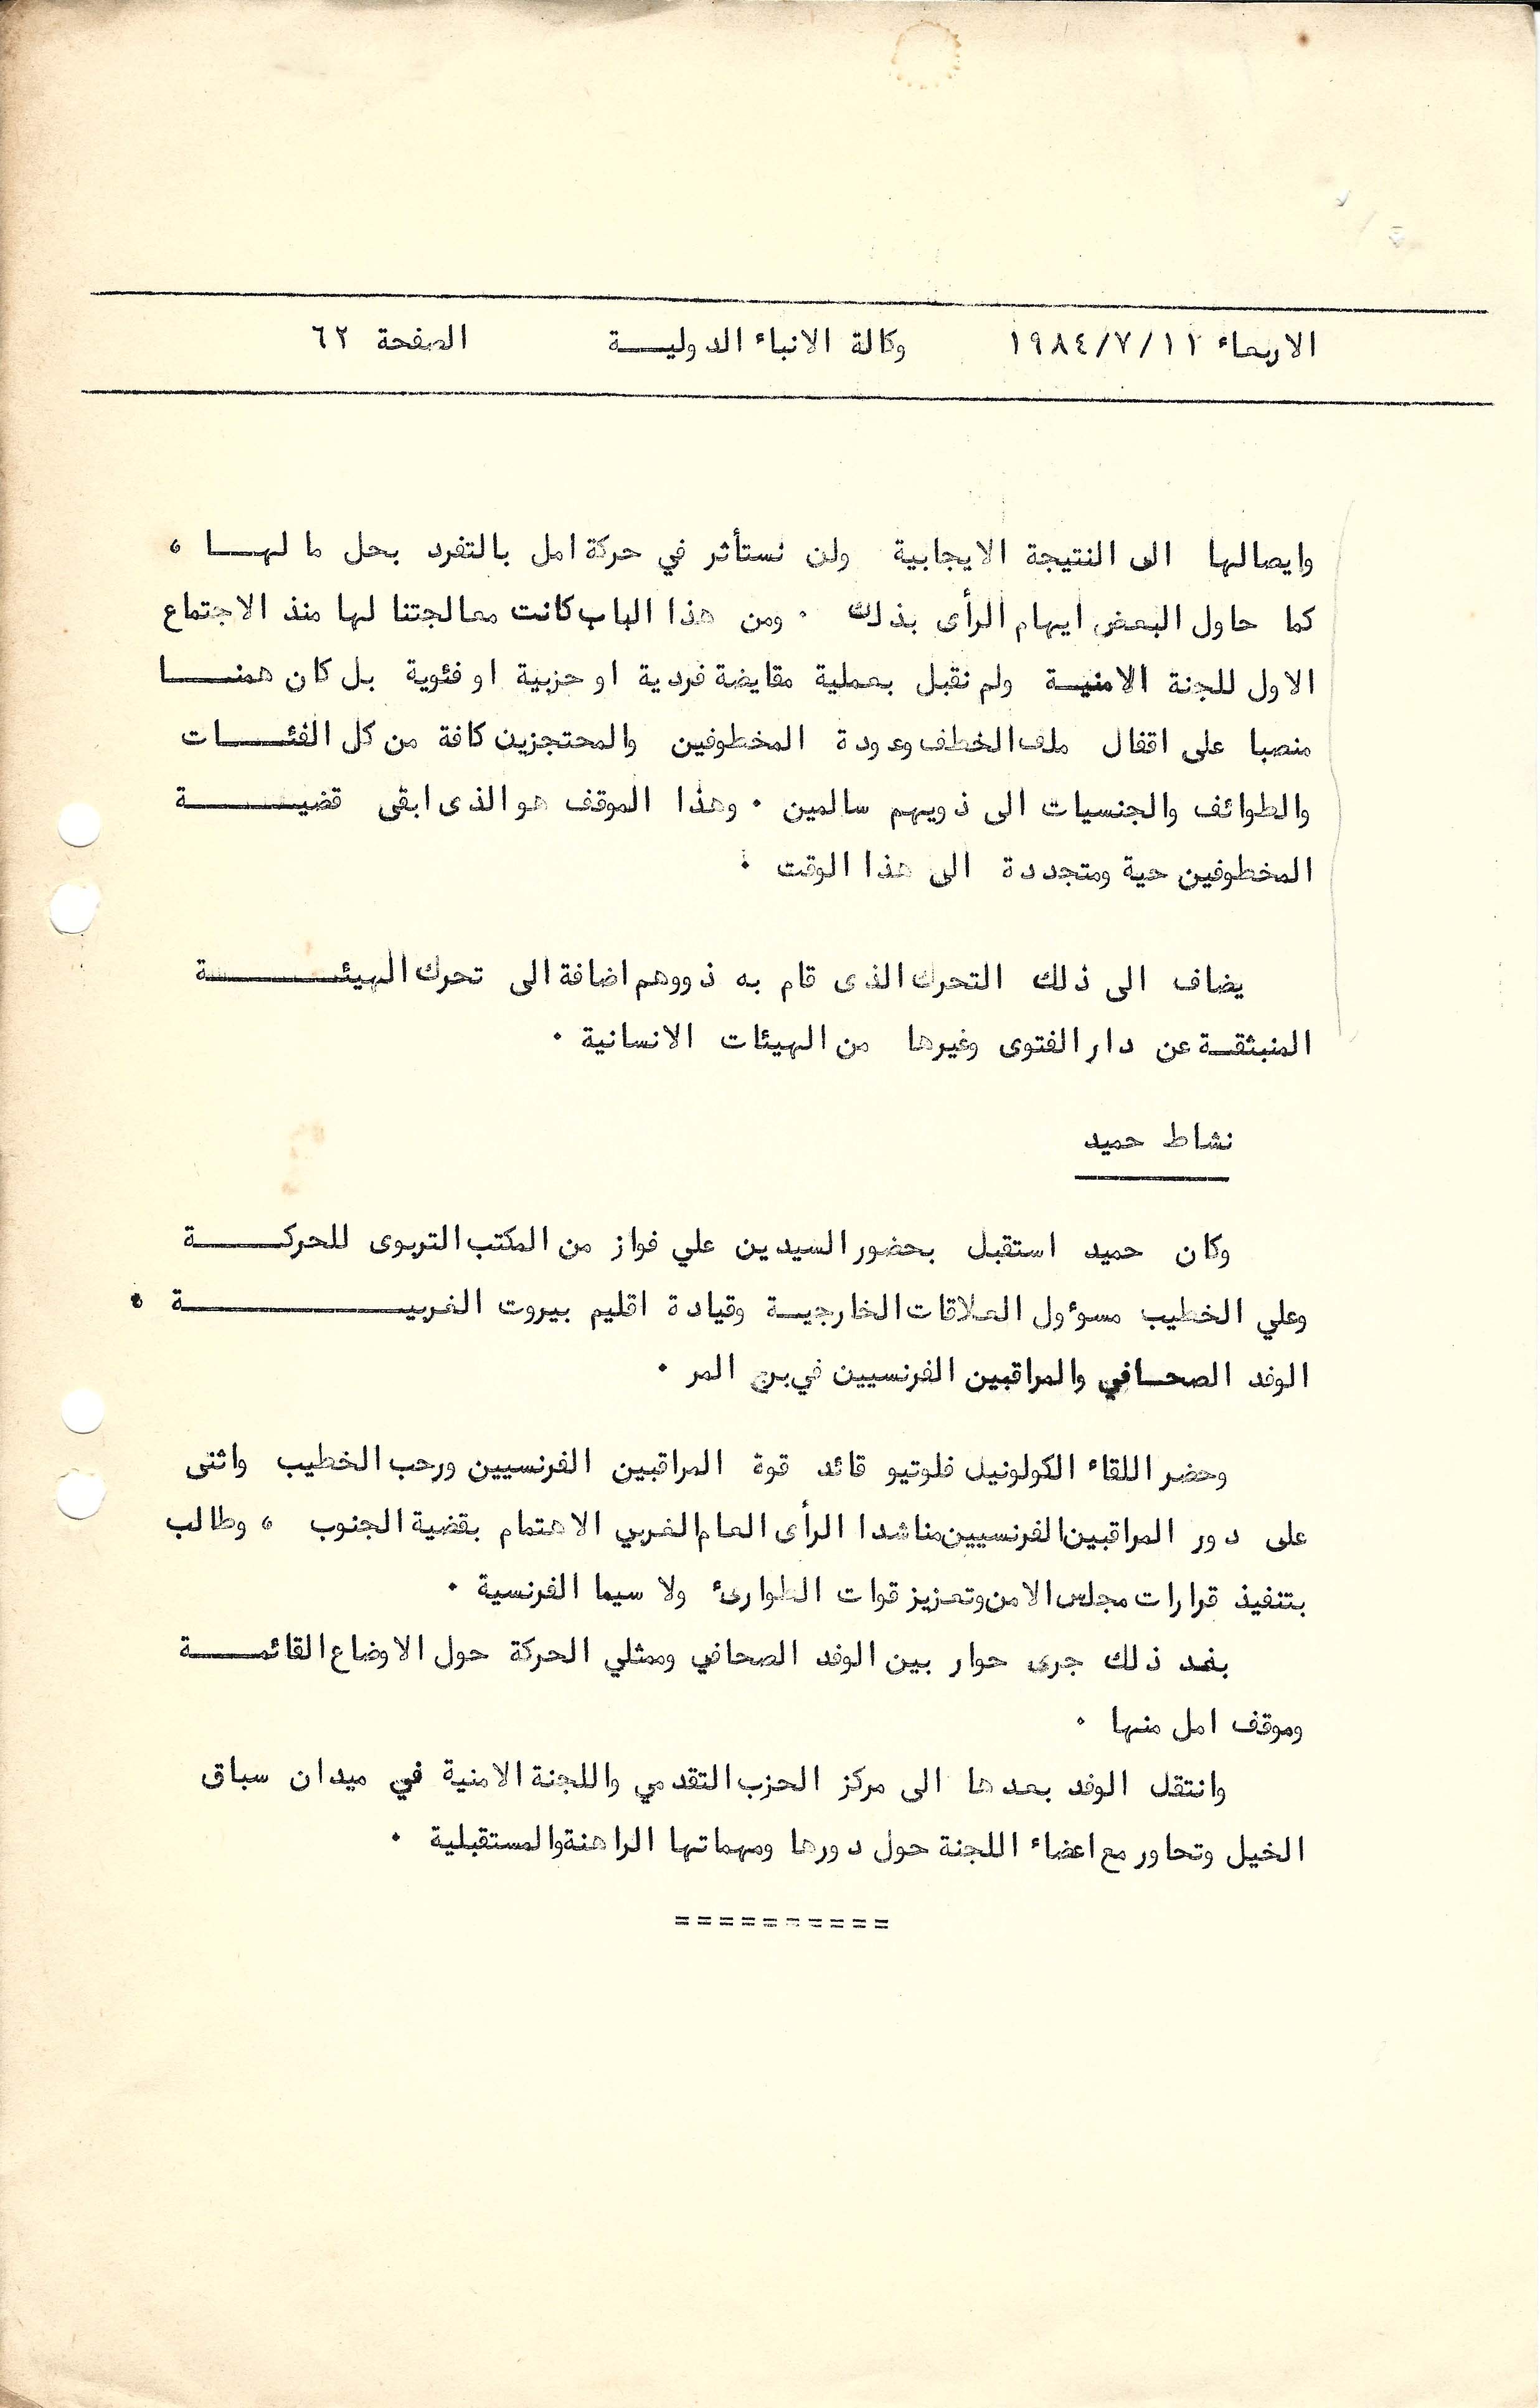 الاربعاء ١٩٨٤/٧/١١ وكالة الانباء الدولية الصفحة ٦٢
وايصالها الى النتيجة الايجابية ولن نستأثر في حركة امل بالتفرد بحل ما لها ،
كما حاول البعض ايهام الرأى بذلك . ومن هذا الباب كانت معالجتنا لها منذ الاجتماع
الاول للجنة الامنية ولم نقبل بعملية مقايضة فردية او حزبية او فئوية بل كان همنا
منصبا على اقفال ملف الخطف وعودة المخطوفين والمحتجزين كافة من كل الفئات
والطوائف والجنسيات الى ذويهم سالمين . وهذا الموقف هو الذى ابقى قضية
المخطوفين حية ومتجددة الى هذا الوقت .
يضاف الى ذلك التحرك الذى قام به ذووهم اضافة الى تحرك الهيئة
المنبثقة عن دار الفتوى وغيرها من الهيئات الانسانية .
نشاط حميد
وكان حميد استقبل بحضور السيدين علي فواز من المكتب التربوى للحركة
وعلي الخطيب مسوءول العلاقات الخارجية وقيادة اقليم بيروت الغربية .
الوفد الصحافي والمراقبين الفرنسيين في برج المر .
وحضر اللقاء الكولونيل فلوتيو قائد قوة المراقبين الفرنسيين ورحب الخطيب واثنى
على دور المراقبين الفرنسيين مناشدا الرأى العام الغربي الاهتمام بقضية الجنوب ، وطالب
بتنفيذ قرارات مجلس الامن وتعزيز قوات الطوارىء ولا سيما الفرنسية .
بعد ذلك جرى حوار بين الوفد الصحافي وممثلي الحركة حول الاوضاع القائمة
وموقف امل منها .
وانتقل الوفد بعدها الى مركز الحزب التقدمي واللجنة الامنية في ميدان سباق
الخيل وتحاور مع اعضاء اللجنة حول دورها ومهماتها الراهنة والمستقبلية .
==========